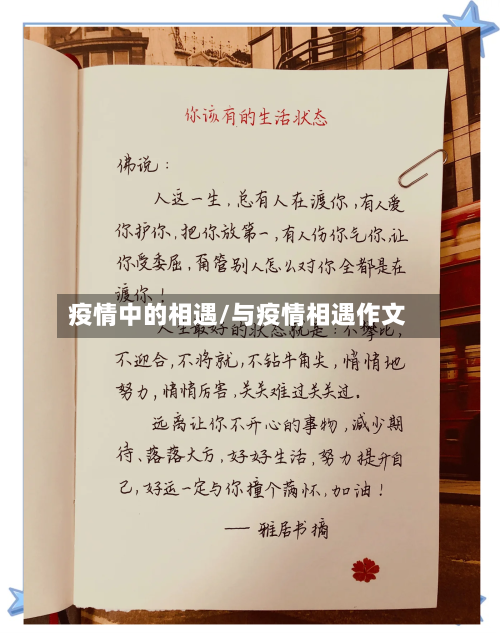 你该有的生活状态
佛说：
人这一生，总有人在渡你，有人爱
你护你，把你放第一，有人伤你气你，让
你受委屈，甭管别人怎么对你全都是在
渡你！
疫情中的相遇/与疫情相遇作文
人生最好的状态就是：不攀比，
不迎合，不将就，不钻牛角尖，悄悄地
努力，悄悄厉害，关关难过关关过。
远离让你不开心的事物，减少期
待、落落大方，好好生活，努力提升自
己，好运一定与你撞个满怀，加油！
—— 雅居书摘